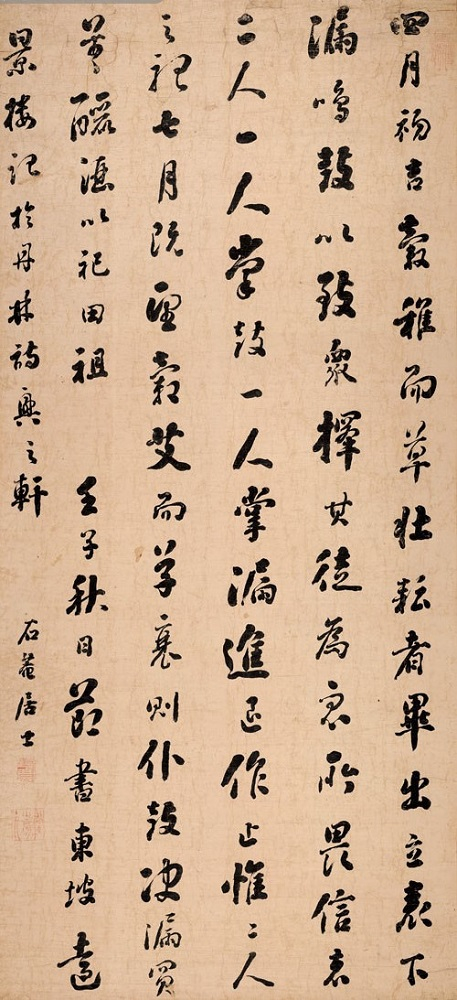 四月初吉穀稚而草壯耘者畢出立表下
漏鳴鼓以致衆擇其徒為衆所畏信者
二人一人掌鼓一人掌漏進退作止惟二人
之聽七月既望穀艾而草衰則仆鼓決漏買
釃酒以祀田祖 壬子秋日節書東坡遠
景樓記於丹林詩興之軒
石菴居士